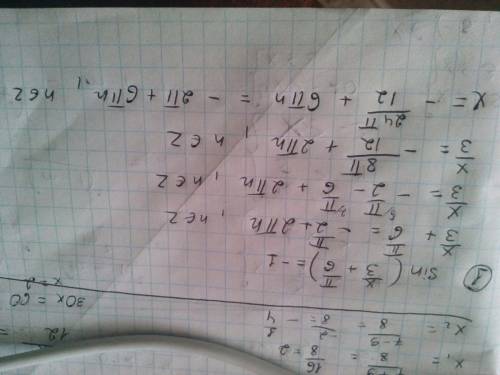 x₁ = (7+9)/8 = 16/8 = 2
x₂ = (7-9)/8 = -2/8 = -1/4
12 =
30x = 60
x = 2
sin(x/3 + π/6) = -1
x/3 + π/6 = -π/2 + 2πn, n∈Z
x/3 = -π/2 - π/6 + 2πn, n∈Z
x/3 = -8π/12 + 2πn, n∈Z
x = -24π/12 + 6πn = -2π + 6πn, n∈Z